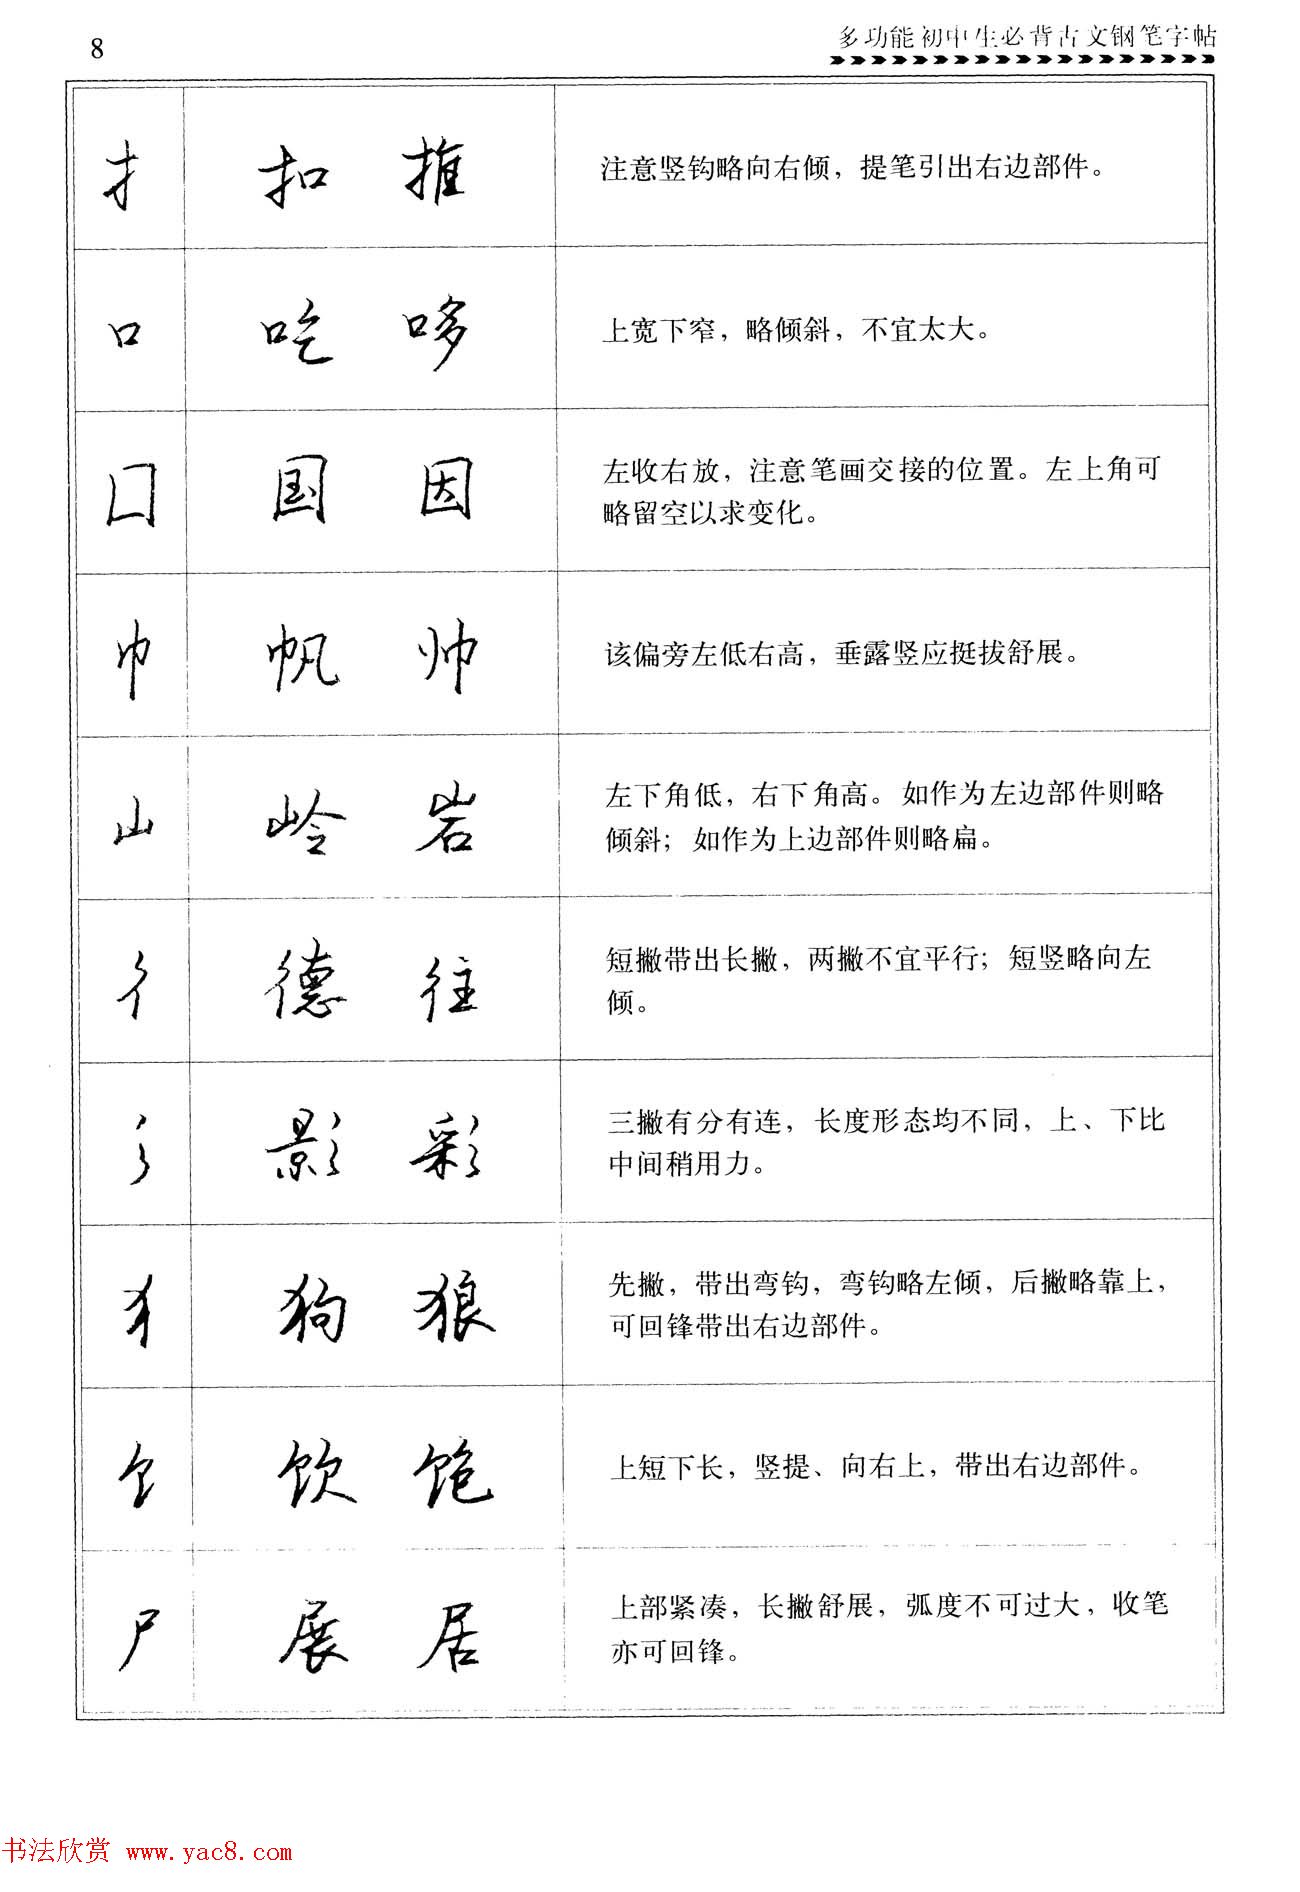 8
多功能初中生必背古文钢笔字帖
扌 扣 推 注意竖钩略向右倾，提笔引出右边部件。
口 吃 哆 上宽下窄，略倾斜，不宜太大。
囗 国 因 左收右放，注意笔画交接的位置。左上角可
略留空以求变化。
巾 帆 帅 该偏旁左低右高，垂露竖应挺拔舒展。
山 岭 岩 左下角低，右下角高。如作为左边部件则略
倾斜；如作为上边部件则略扁。
彳 德 往 短撇带出长撇，两撇不宜平行；短竖略向左
倾。
彡 影 彩 三撇有分有连，长度形态均不同，上、下比
中间稍用力。
犭 狗 狼 先撇，带出弯钩，弯钩略左倾，后撇略靠上，
可回锋带出右边部件。
饣 饮 饱 上短下长，竖提、向右上，带出右边部件。
尸 展 居 上部紧凑，长撇舒展，弧度不可过大，收笔
亦可回锋。
书法欣赏 www.yac8.com